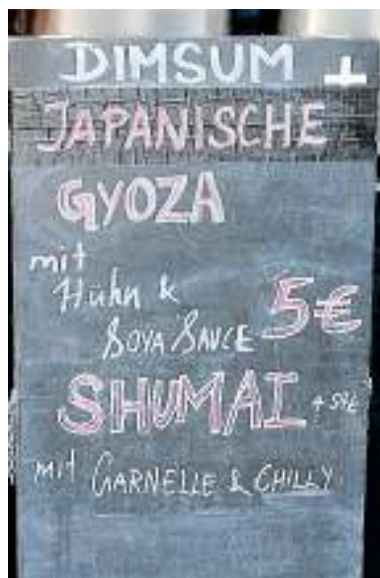 DIMSUM
JAPANISCHE
GYOZA
mit
Hühn &
SOYA SAUCE 5€
SHUMAI
mit GARNELLE & CHILLY